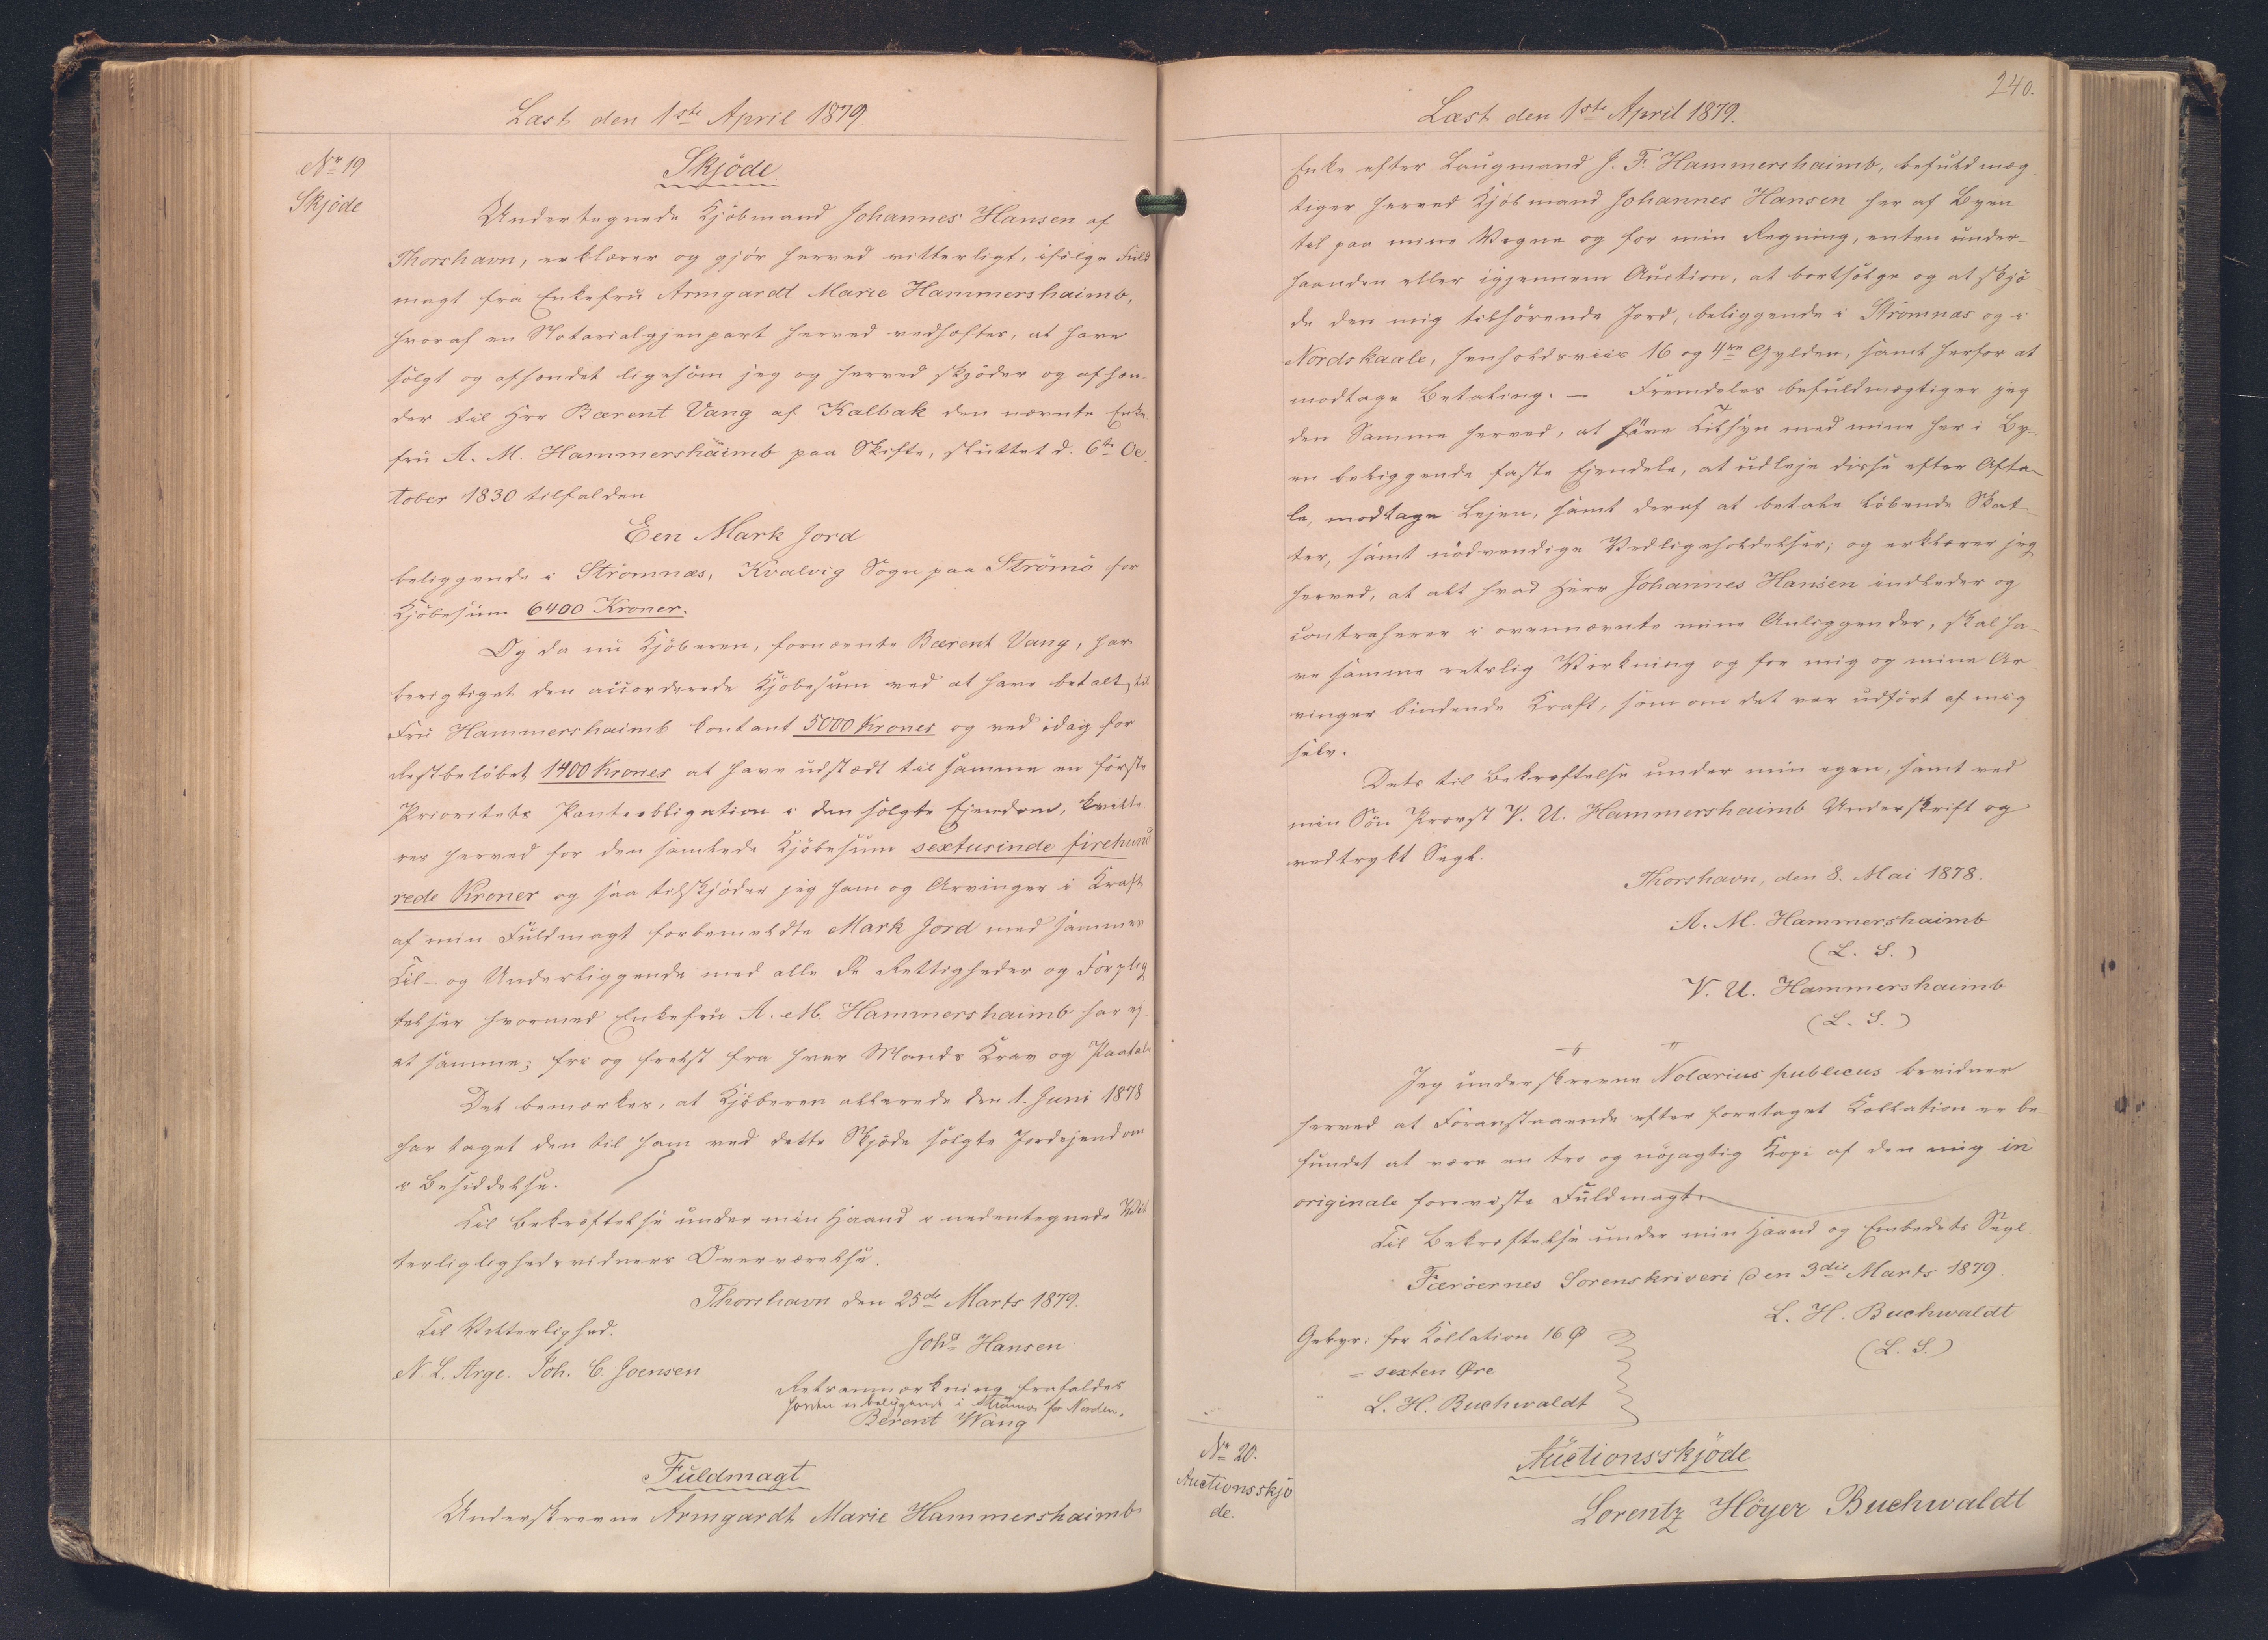 Læst den 1ste April 1879
No 19
Skjöde
Skjöde
Undertegnede Kjöbmand Johannes Hansen af
Thorshavn, erklærer og gjör herved vitterligt, ifölge Fuld
magt fra Enkefru Armgardt Marie Hammershaimb,
hvoraf en Notarialgjenpart herved vedhæftes, at have
solgt og afhændet ligesom jeg og herved skjöder og afhæn-
der til Hrr Bærent Vang af Kalbak den nævnte Enke
fru A. M. Hammershaimb paa Skifte, sluttet d. 6te Oc
tober 1830 tilfalden
Een Mark Jord
beliggende i Strömnæs, Kvalvig Sogn paa Strömö for
Kjöbesum 6400 Kroner.
Og da nu Kjöberen, fornævnte Bærent Vang, har
berigtiget den accorderede Kjöbesum ved at have betalt til
Fru Hammershaimb kontant 5000 Kroner og ved idag for
Restbelöbet 1400 Kroner at have udstædt til samme en förste
Prioritets Panteobligation i den solgte Ejendom, kvitte
rer herved for den samlede Kjöbesum sextusinde firehund
rede Kroner og saa tilskjöder jeg ham og Arvinger i Kraft
af min Fuldmagt forbemeldte Mark Jord med sammes
Til- og Underliggende med alle de Rettigheder og Forplig
telser hvormed Enkefru A. M. Hammershaimb har ej-
et samme; fri og frelst fra hver Mands Krav og Paatale
Det bemærkes, at Kjöberen allerede den 1. Juni 1878
har taget den til ham ved dette Skjöde solgte Jordejendom
i Besiddelse.
Til Bekræftelse under min Haand i nedentegnede Vit
terliglighedsvidners Overværelse.
Thorshavn den 25de Marts 1879.
Til Vitterlighed.
Johs Hansen
N. L. Arge. Joh. C. Joensen
Retsanmærkning frafaldes
Jorden er beliggende i Strömnæs for Norden.
Berent Wang
Fuldmagt
Underskrevne Armgardt Marie Hammershaimb
240.
Læst den 1ste April 1879.
Enke efter Laugmand J. F. Hammershaimb, befuldmæg
tiger herved Kjöbmand Johannes Hansen her af Byen
til paa mine Vegne og for min Regning, enten under-
haanden eller igjennem Auction, at bortsælge og at skjö
de den mig tilhörende Jord, beliggende i Strömnæs og i
Nordskaale, henholdsviis 16 og 4re Gylden, samt herfor at
modtage Betaling. — Fremdeles befuldmægtiger jeg
den Samme herved, at före Tilsyn med mine her i By-
en beliggende faste Ejendele, at udleje disse efter Afta-
le, modtage Lejen, samt deraf at betale löbende Skat-
ter, samt nödvendige Vedligeholdelser; og erklærer jeg
herved, at alt hvad Herr Johannes Hansen indleder og
contraherer i ovennævnte mine Anliggender, skal ha-
ve samme retslig Virkning og for mig og mine Ar
vinger bindende Kraft, som om det var udfört af mig
selv.
Dets til Bekræftelse under min egen, samt ved
min Sön Provst V. U. Hammershaimb Underskrift og
vedtrykt Segl.
Thorshavn, den 8. Mai 1878.
A. M. Hammershaimb
(L. S.)
V. U. Hammershaimb
(L. S.)
Jeg underskrevne Notarius publicus bevidner
herved at Foranstaaende efter foretaget Kollation er be-
fundet at være en tro og nöjagtig Kopi af den mig in
originale foreviste Fuldmagt.
Til Bekræftelse under min Haand og Embedets Segl.
Færöernes Sorenskriveri den 3die Marts 1879.
L. H. Buchwaldt
(L. S.)
Gebyr: for Kollation 16 Ø
= sexten Øre
L. H. Buchwaldt
No 20.
Auctionsskjö
de.
Auctionsskjöde
Lorentz Höyer Buchwaldt